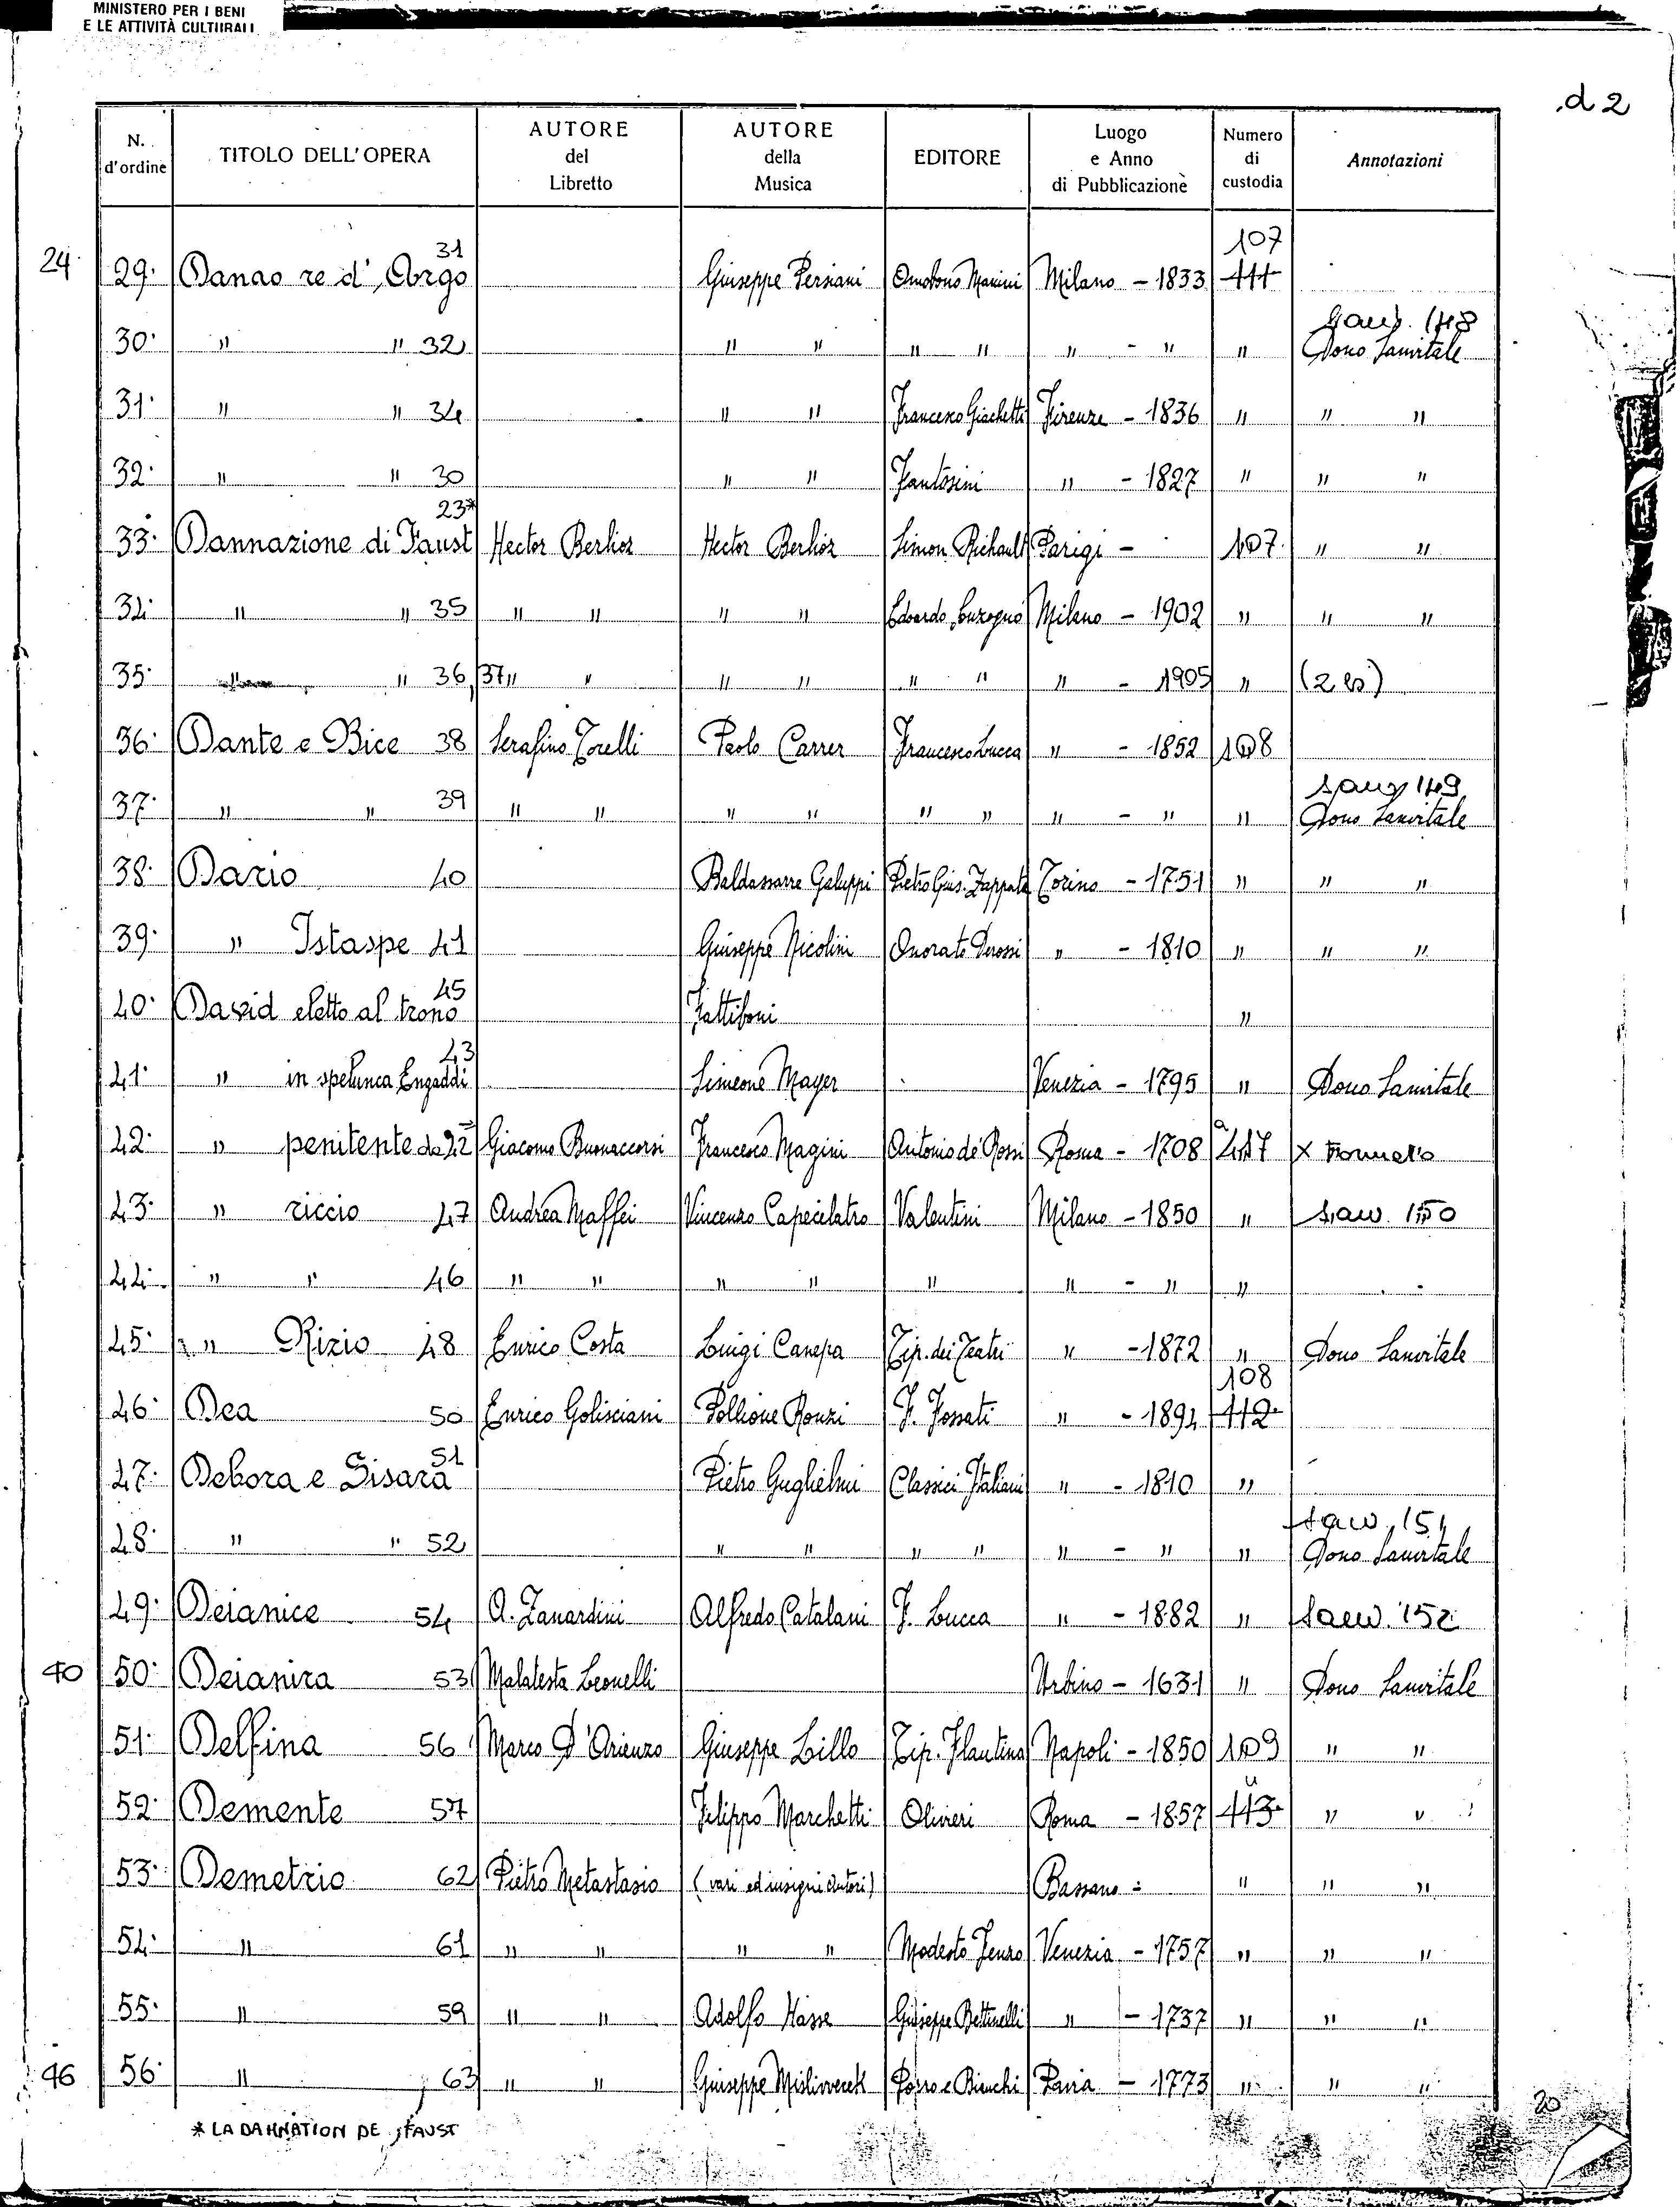 MINISTERO PER I BENI
E LE ATTIVITÀ CULTURALI
d 2
N. d'ordine TITOLO DELL'OPERA AUTORE del Libretto AUTORE della Musica EDITORE Luogo e Anno di Pubblicazione Numero di custodia Annotazioni
24 29. Danao re d'Argo 31 Giuseppe Persiani Omobono Manini Milano - 1833 107 111
30. " " 32 " " " " " - " " Sanv. 148 Dono Sanvitale
31. " " 34 " " Francesco Giachetti Firenze - 1836 " " "
32. " " 30 " " Fantosini " - 1827 " " "
33. Dannazione di Faust 23* Hector Berlioz Hector Berlioz Simon Richault Parigi - 107 " "
34. " " 35 " " " " Edoardo Sonzogno Milano - 1902 " " "
35. " " 36, 37 " " " " " " " - 1905 " (2 es)
36. Dante e Bice 38 Serafino Torelli Paolo Carrer Francesco Lucca " - 1852 108
37. " " 39 " " " " " " " - " " Sanv 149 Dono Sanvitale
38. Dario 40 Baldassarre Galuppi Pietro Gius. Zappata Torino - 1751 " " "
39. " Istaspe 41 Giuseppe Nicolini Onorato Derossi " - 1810 " " "
40. David eletto al trono 45 Fattiboni "
41. " in spelunca Engaddi 43 Simeone Mayer Venezia - 1795 " Dono Sanvitale
42. " penitente da 22 Giacomo Buonaccorsi Francesco Magini Antonio de' Rossi Roma - 1708 X Formato
43. " riccio 47 Andrea Maffei Vincenzo Capecelatro Valentini Milano - 1850 " Sanv. 150
44. " " 46 " " " " " " - " "
45. " Rizio 48 Enrico Costa Luigi Canepa Tip. dei Teatri " - 1872 " Dono Sanvitale
46. Dea 50 Enrico Golisciani Pollione Ronzi F. Fossati " - 1894 108 112
47. Debora e Sisara 51 Pietro Guglielmi Classici Italiani " - 1810 "
48. " " 52 " " " " " - " " Sanv. 151 Dono Sanvitale
49. Deianice 54 A. Zanardini Alfredo Catalani F. Lucca " - 1882 " Sanv. 152
40 50. Deianira 53 Malatesta Leonelli Urbino - 1631 " Dono Sanvitale
51. Delfina 56 Marco D'Arienzo Giuseppe Lillo Tip. Flautina Napoli - 1850 109 " "
52. Demente 57 Filippo Marchetti Olivieri Roma - 1857 " 113 " "
53. Demetrio 62 Pietro Metastasio (vari ed insigni autori) Bassano - " " "
54. " 61 " " " " Modesto Fenzo Venezia - 1757 " " "
55. " 59 " " Adolfo Hasse Giuseppe Bettinelli " - 1737 " " "
46 56. " 63 " " Giuseppe Mislivvecek Porro e Bianchi Pavia - 1773 " " "
* LA DAMNATION DE FAUST
20